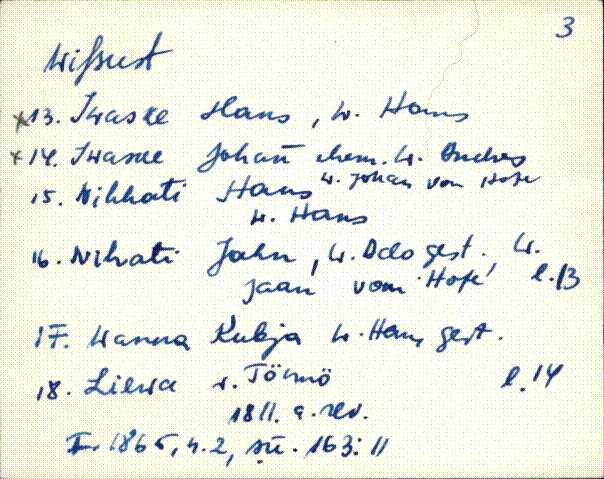 3
Wißust
x 13. Iwaske Hans, W. Hans
x 14. Iwaske Johañ ehem. W. Andres
15. Nihhati Hans W. Johan vom Hofe
W. Hans
16. Nihati Jahn, W. Ado gest. W.
Jaan vom 'Hofe' l. 13
17. Wanna Kubja W. Hans gest.
18. Liewa W. Tönnö l. 14
1811. a. rev.
F. 1865, n. 2, sü. 163: 11